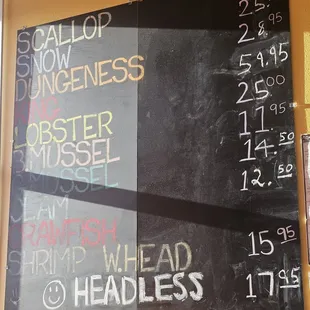 SCALLOP 25.
SNOW 28.95
DUNGENESS
KING 59.95
LOBSTER 25.00
B.MUSSEL 11.95
MUSSEL 14.50
CLAM 12.50
CRAWFISH
SHRIMP W.HEAD 15.95
HEADLESS 17.95